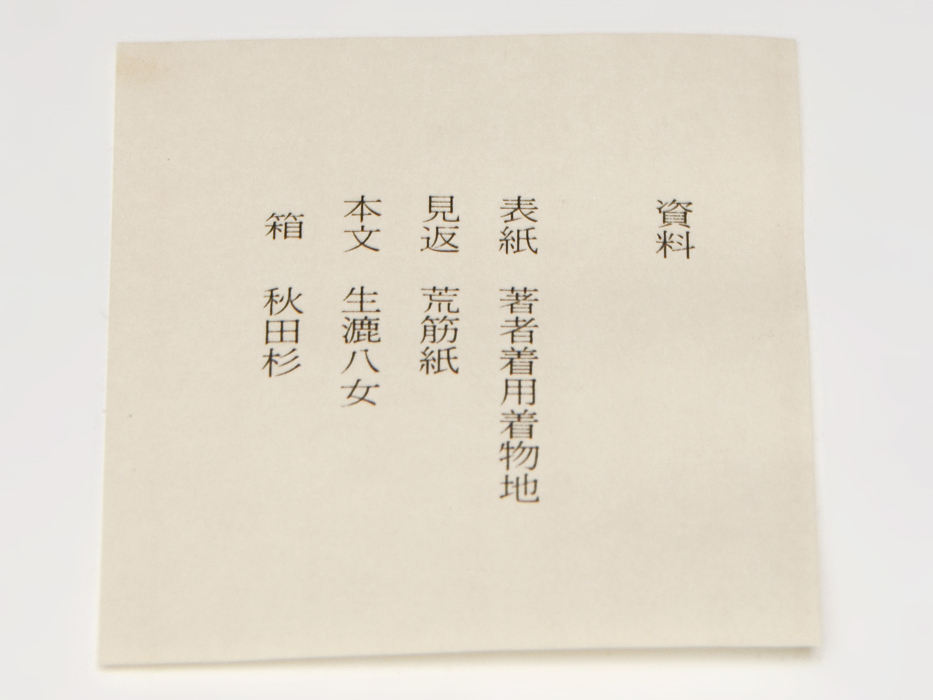 資料
表紙　著者着用着物地
見返　荒筋紙
本文　生漉八女
箱　秋田杉